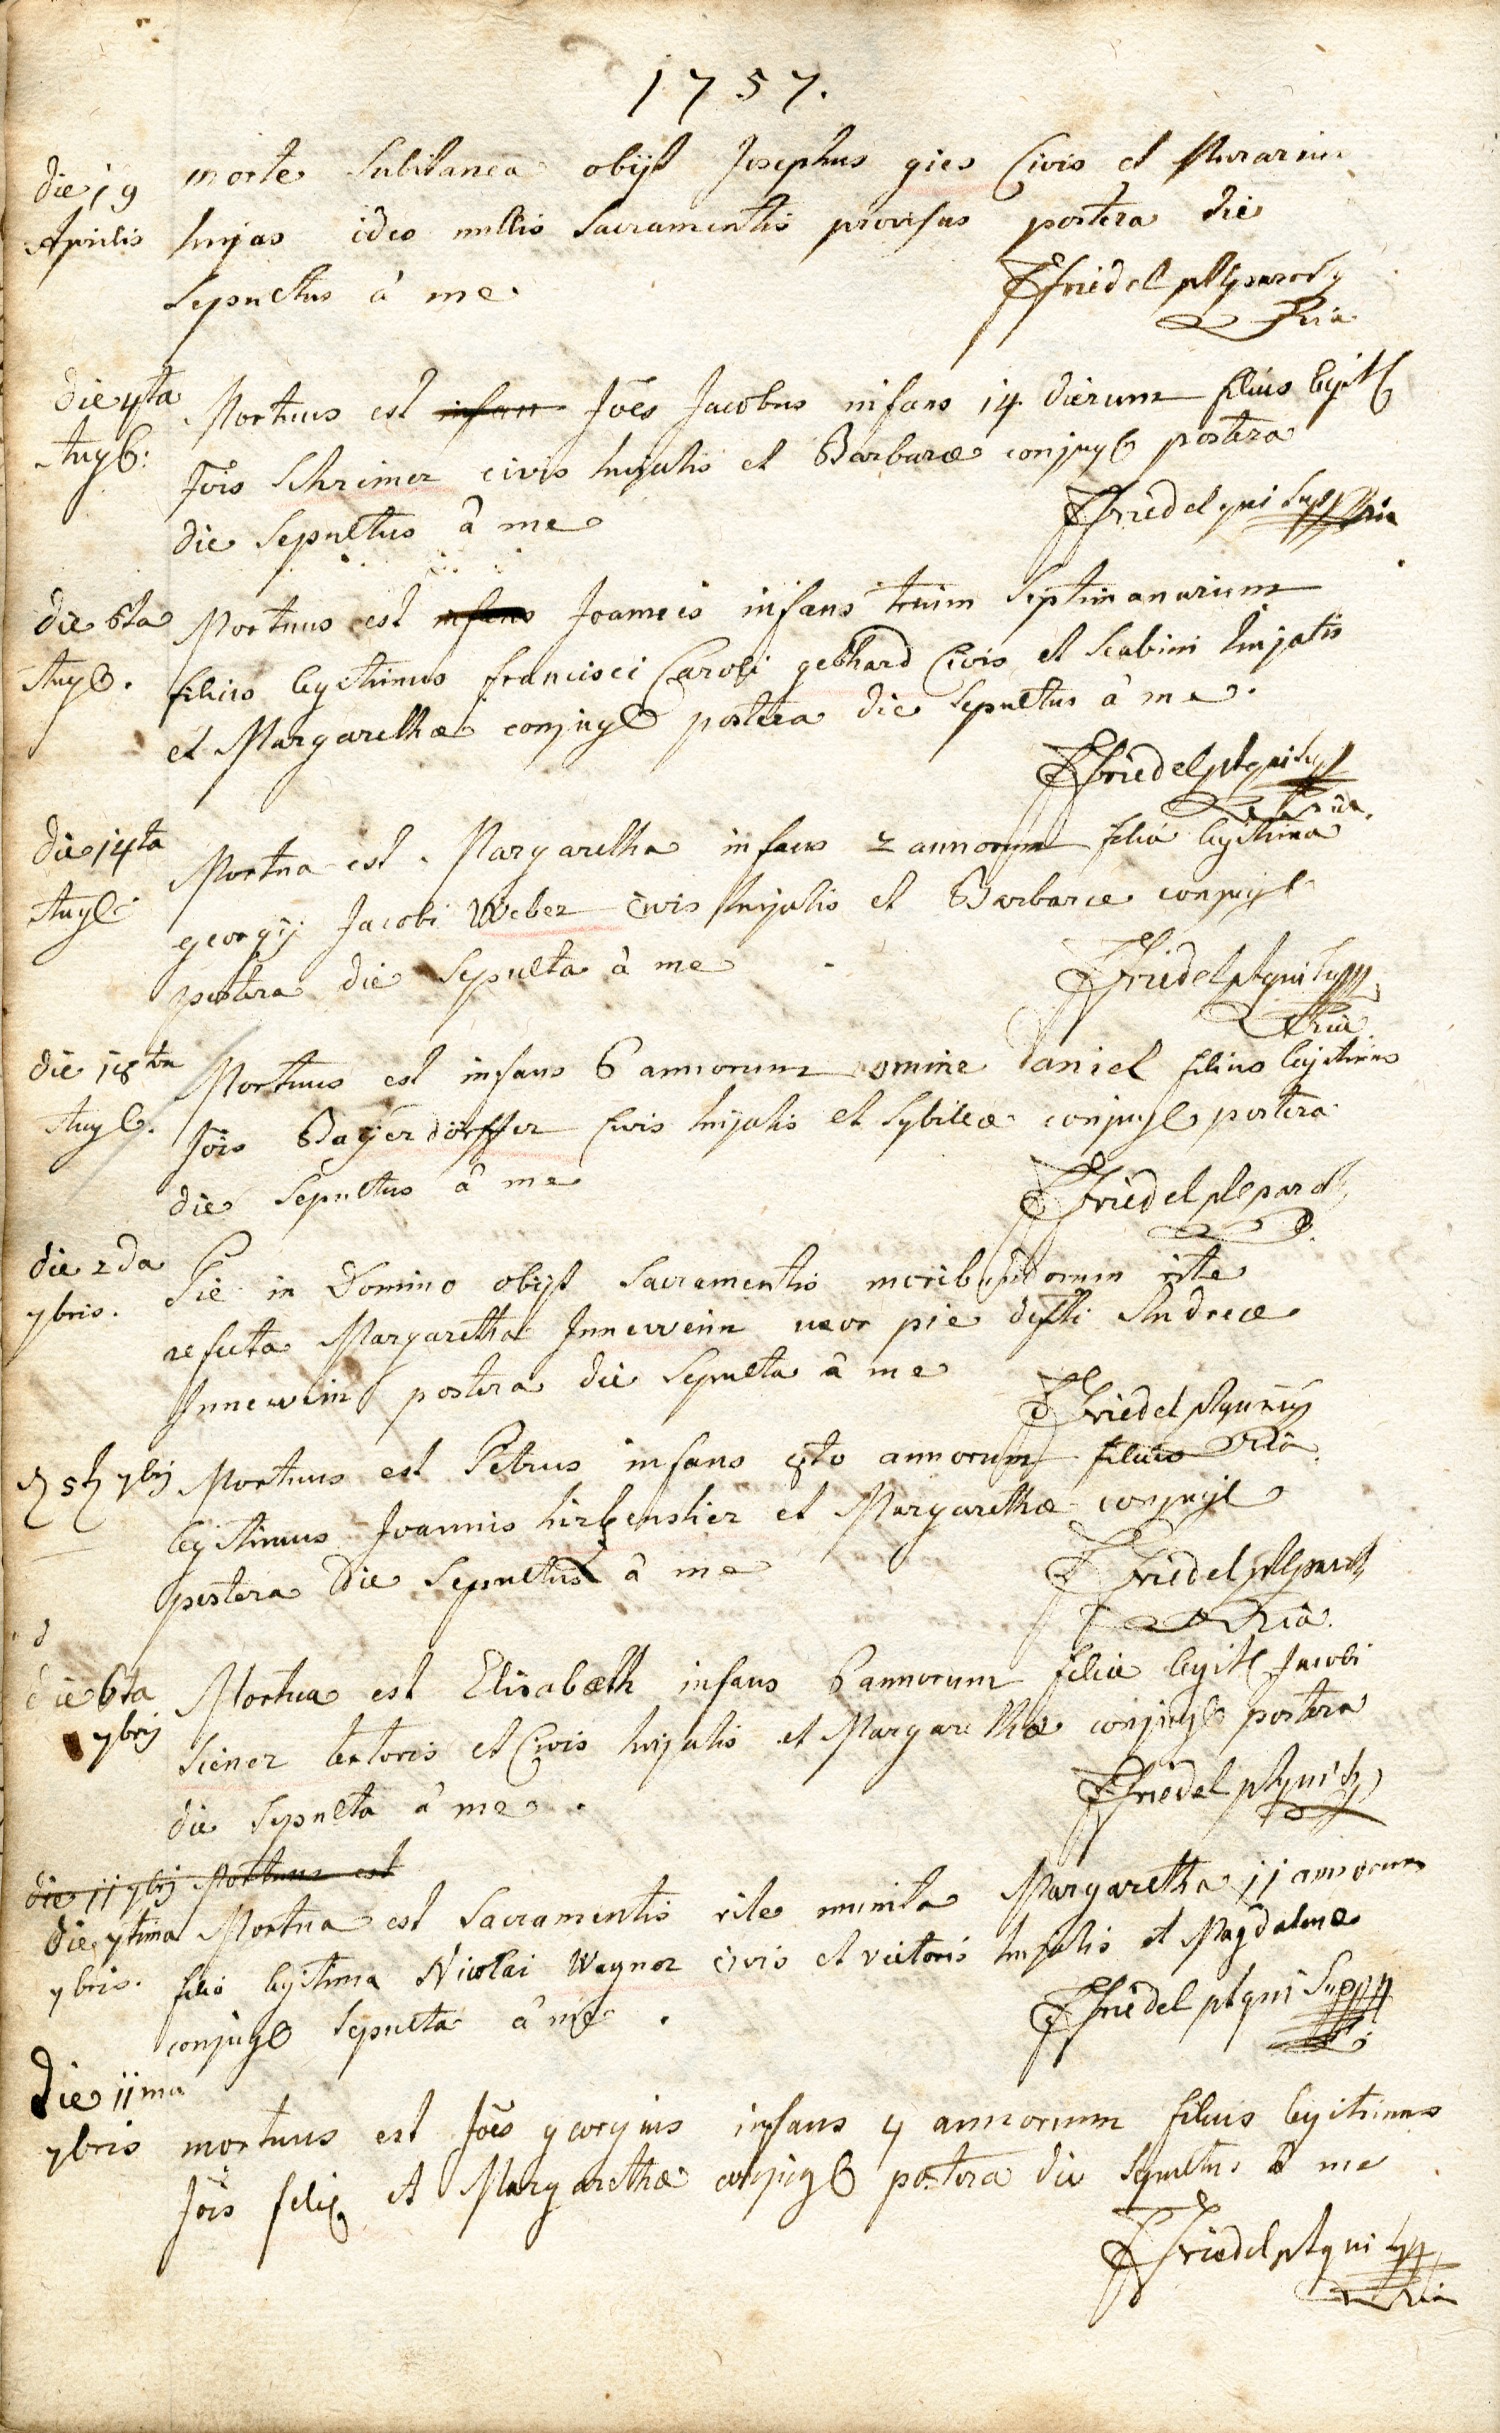 1757.
die 19 morte subitanea obijt Josephus gies Civis et Murarius
Aprilis hujas ideo nullis Sacramentis provisus postera die
Sepultus â me
Friedel pltparochy
pria
die 4ta Mortuus est infans Jões Jacobus infans 14 dierum filius legit
Augb: Jois Schreiner civis hujatis et Barbaræ conjugb postera
die Sepultus â me
Friedel qui supp pria
die 6ta Mortuus est infans Joannes infans trium Septimanarium
Augb. filius legitimus francisci Caroli gebhard Civis et Scabini hujatis
et Margarethæ conjugb postera die Sepultus â me.
Friedel pltqui sup
pria.
die 14ta Mortua est . Margaretha infans 2 annorum filia legitima
Augb georgij Jacobi Weber civis hujatis et Barbaræ conjugl
postera die Sepulta â me
Friedel pltqui supp
pria
die 18ta Mortuus est infans 6 annorum nomine Daniel filius legitimus
Augb. Jois Bayerdörffer civis hujatis et Sybillæ conjugb postera
die Sepultus â me
Friedel pltparoch
die 2da Pie in Domino obijt Sacramentis moribundorum rite
7bris. refecta Margaretha Innewein uxor pie defti Andreæ
Innewein postera die Sepulta â me
Friedel pltqui sup
pria
5t 7brij Mortuus est Petrus infans 8to annorum filius
legitimus Joannis hirbenstier et Margarethæ conjugl
postera die Sepultus â me
Friedel pltparoch
pria.
die 6ta Mortua est Elisabeth infans 6 annorum filia legit Jacobi
7brij Siener textoris et Civis hujatis et Margarethæ conjugb postera
die Sepulta â me.
Friedel pltqui sup
die 11 7brij Mortuus est
die 7tima Mortua est Sacramentis rite munita Margaretha 11 annorum
7bris. filia legitima Nicolai Wagner civis et vietoris hujatis et Magdalenæ
conjugb Sepulta â me .
Friedel pltqui Supp
die 11ma
7bris mortuus est Jões georgius infans 4 annorum filius legitimus
Jois felix et Margarethæ conjugb postera die Sepultus â me
Friedel pltqui supp
pria